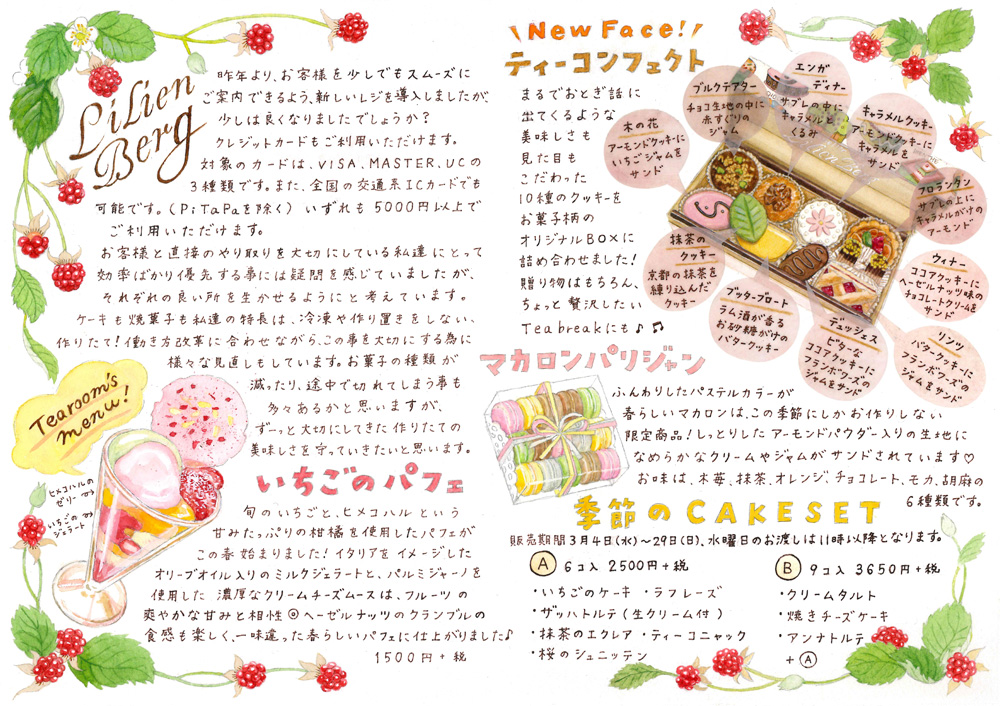 LiLien
Berg
昨年より、お客様を少しでもスムーズに
ご案内できるよう、新しいレジを導入しましたが、
少しは良くなりましたでしょうか?
クレジットカードもご利用いただけます。
対象のカードは、VISA、MASTER、UCの
3種類です。また、全国の交通系ICカードでも
可能です。(PiTaPaを除く) いずれも5000円以上で
ご利用いただけます。
お客様と直接のやり取りを大切にしている私達にとって
効率ばかり優先する事には疑問を感じていましたが、
それぞれの良い所を生かせるようにと考えています。
ケーキも焼菓子も私達の特長は、冷凍や作り置きをしない、
作りたて!働き方改革に合わせながら、この事を大切にする為に
様々な見直しもしています。お菓子の種類が
減ったり、途中で切れてしまう事も
多々あるかと思いますが、
ずーっと大切にしてきた作りたての
美味しさを守っていきたいと思います。
Tearoom's
menu!
いちごのパフェ
ヒメコハルの
ゼリー
いちごの
ジェラート
旬のいちごと、ヒメコハルという
甘みたっぷりの柑橘を使用したパフェが
この春始まりました!イタリアをイメージした
オリーブオイル入りのミルクジェラートと、パルミジャーノを
使用した 濃厚なクリームチーズムースは、フルーツの
爽やかな甘みと相性◎ヘーゼルナッツのクランブルの
食感も楽しく、一味違った春らしいパフェに仕上がりました♪
1500円+税
New Face!
ティーコンフェクト
まるでおとぎ話に
出てくるような
美味しさも
見た目も
こだわった
10種のクッキーを
お菓子柄の
オリジナルBOXに
詰め合わせました!
贈り物はもちろん、
ちょっと贅沢したい
Teabreakにも♪♫
木の花
アーモンドクッキーに
いちごジャムを
サンド
ブルクテアター
チョコ生地の中に
赤すぐりの
ジャム
エンガ
ディナー
サブレの中に
キャラメルと
くるみ
キャラメルクッキー
アーモンドクッキーに
キャラメルを
サンド
フロランタン
サブレの上に
キャラメルがけの
アーモンド
ウィナー
ココアクッキーに
ヘーゼルナッツ味の
チョコレートクリームを
サンド
リンツ
バタークッキーに
フランボワーズの
ジャムをサンド
デュッシェス
ビターな
ココアクッキーに
フランボワーズの
ジャムをサンド
ブッターブロート
ラム酒が香る
お砂糖がけの
バタークッキー
抹茶の
クッキー
京都の抹茶を
練り込んだ
クッキー
マカロンパリジャン
ふんわりしたパステルカラーが
春らしいマカロンは、この季節にしかお作りしない
限定商品!しっとりしたアーモンドパウダー入りの生地に
なめらかなクリームやジャムがサンドされています♡
お味は、木苺、抹茶、オレンジ、チョコレート、モカ、胡麻の
6種類です。
季節のCAKESET
販売期間3月4日(水)〜29日(日)、水曜日のお渡しは11時以降となります。
Ⓐ 6コ入 2500円+税
・いちごのケーキ ・ラフレーズ
・ザッハトルテ(生クリーム付)
・抹茶のエクレア ・ティーコニャック
・桜のシュニッテン
Ⓑ 9コ入 3650円+税
・クリームタルト
・焼きチーズケーキ
・アンナトルテ
+Ⓐ